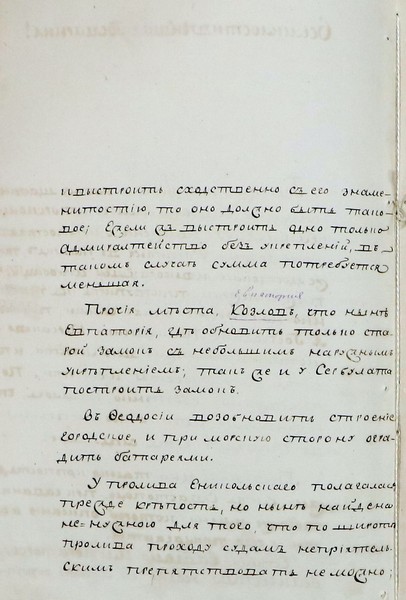 и выстроить сходственно съ его знаме-
нитостію, то оно должно быть тако-
вое; Ежели жъ выстроить одно только
адмиралтейство безъ укрепленій, въ
такомъ случаѣ сумма потребуется
меньшая.
Евпаторія
Прочія мѣста, Козловъ, что нынѣ
Евпаторія, гдѣ обновить только ста-
рой замокъ съ небольшимъ наружнымъ
укрѣпленіемъ; такъ же и у Сербулата
построить замокъ.
Въ Ѳеодосіи возобновить строеніе
городское, и при морскую сторону огра-
дить батареями.
У пролива Еникольскаго полагалась
прежде крѣпость, но нынѣ найдена
не-нужною для того, что по широтѣ
пролива проходу судамъ непріятель-
скимъ препятствовать не можно;